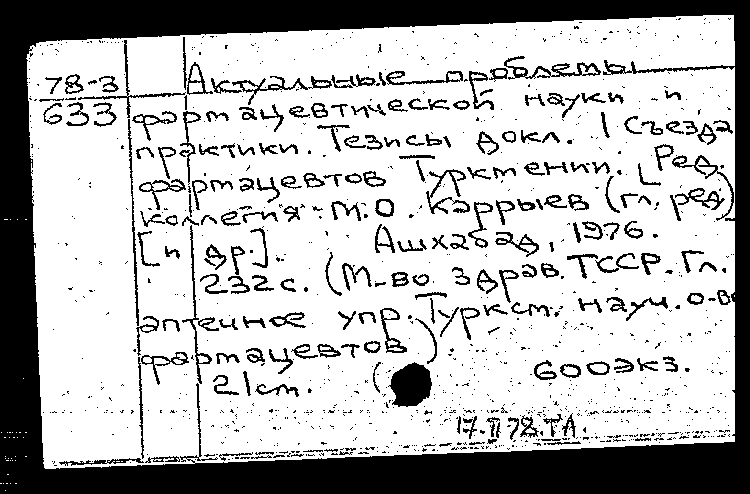 78-3 Актуальные проблемы
633 фармацевтической науки и
практики. Тезисы докл. I съезда
фармацевтов Туркмении. [Ред.
коллегия: М.О. Каррыев (гл. ред)
[и др.]. Ашхабад, 1976.
232 с. (М-во здрав. ТССР. Гл.
аптечное упр. Туркм. науч. о-во
фармацевтов).
21 см. 600 экз.
17.II 78. ТА.